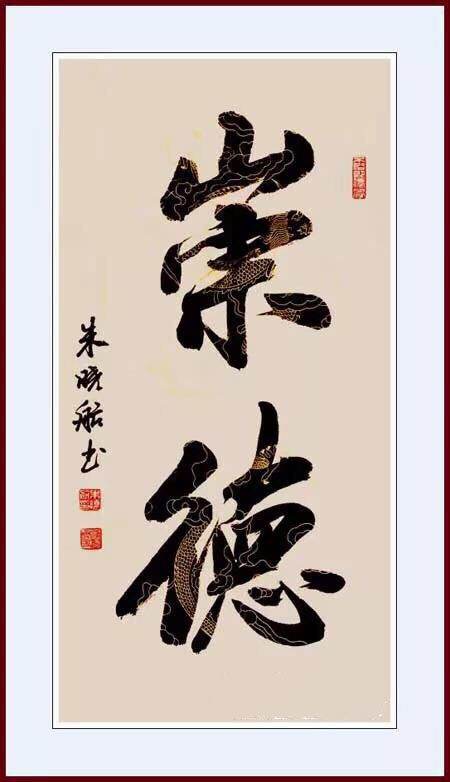 崇德
朱晓船书